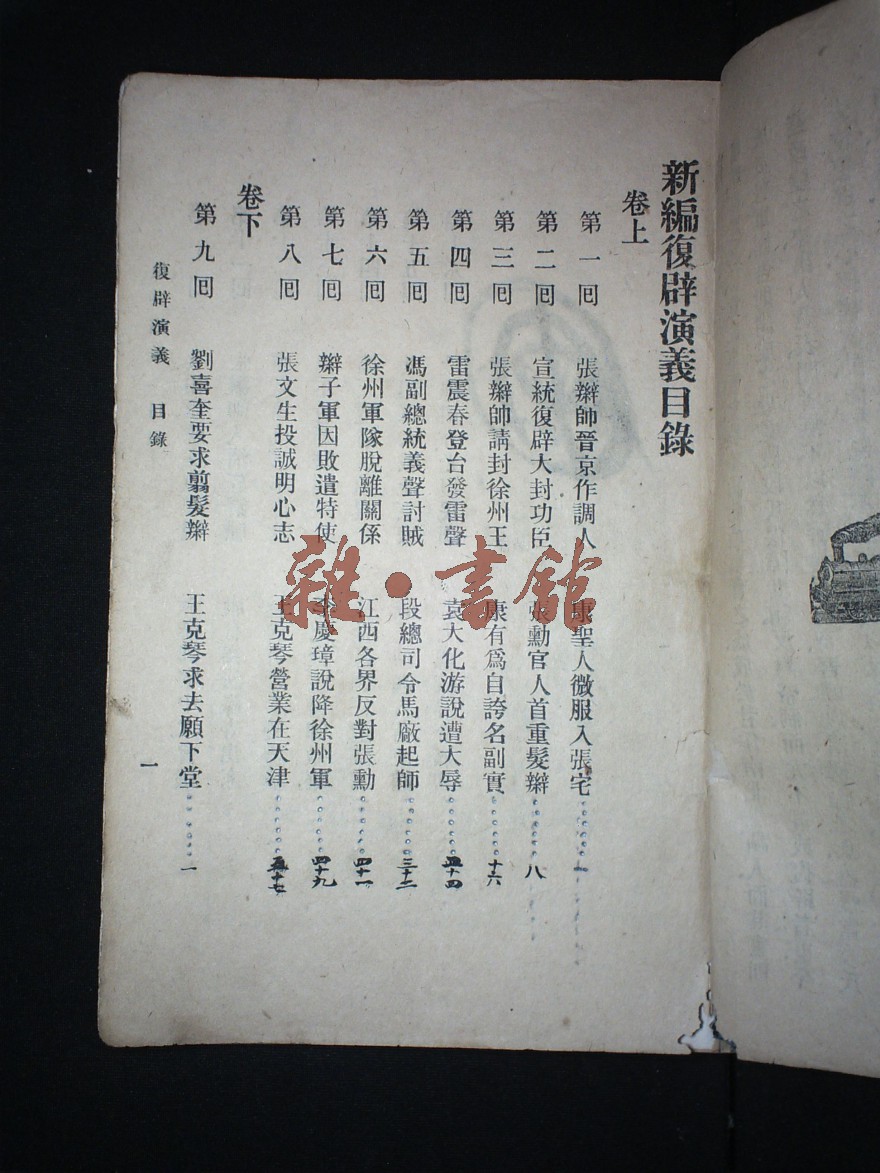 新編復辟演義目錄
卷上
第一回 張辮帥晉京作調人 康聖人微服入張宅 一
第二回 宣統復辟大封功臣 張勳官人首重髮辮 八
第三回 張辮帥請封徐州王 康有爲自誇名副實 十六
第四回 雷震春登台發雷聲 袁大化游說遭大辱
第五回 馮副總統義聲討賊 段總司令馬廠起師 三十二
第六回 徐州軍隊脫離關係 江西各界反對張勳 四十一
第七回 辮子軍因敗遣特使 李慶璋說降徐州軍 四十九
第八回 張文生投誠明心志 王克琴營業在天津
卷下
第九回 劉喜奎要求翦髮辮 王克琴求去願下堂 一
復辟演義 目錄 一
雜·書館